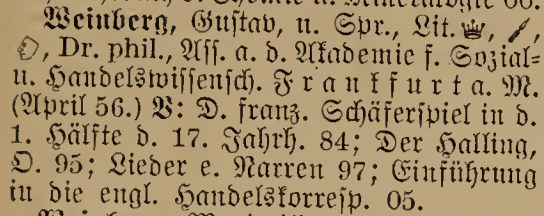 Weinberg, Gustav, n. Spr., Lit.
Dr. phil., Ass. a. d. Akademie f. Sozial-
u. Handelswissensch. Frankfurt a. M.
(April 56.) V: D. franz. Schäferspiel in d.
1. Hälfte d. 17. Jahrh. 84; Der Halling,
D. 95; Lieder e. Narren 97; Einführung
in die engl. Handelskorresp. 05.